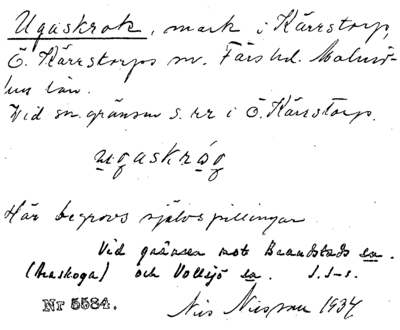 Ugaskrok, mark i Kärrstorp,
Ö. Kärrstorps sn. Färs hd. Malmö-
hus län.
Vid sn.gränsen s. i Ö. Kärrstorp.
ugaskråg
Här begrovs självspillingar
Vid gränsen mot Brandstads sn.
(Araskoga) och Vollsjö sn. S.I-s.
Nr 5584. Nils Nilsson 1934